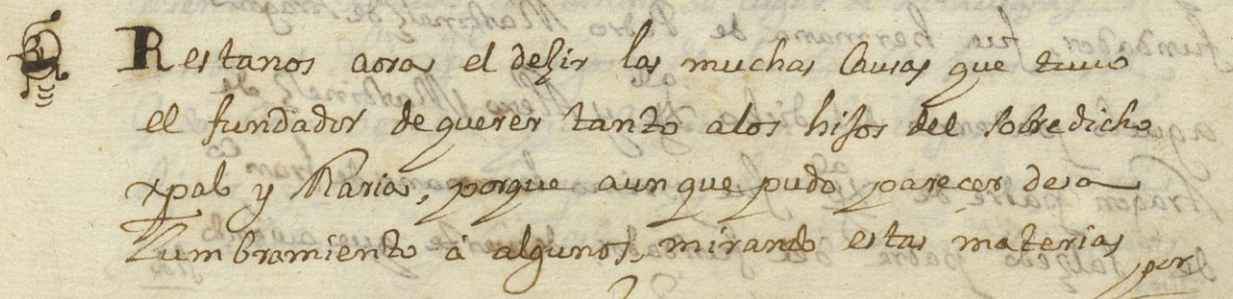 Restanos aora el dezir las muchas causas que tuuo
el fundador de querer tanto a los hijos del sobre dicho
xpal y Maria, porque aun que pudo parecer de a
lumbramiento á algunos, mirando estas materias
por